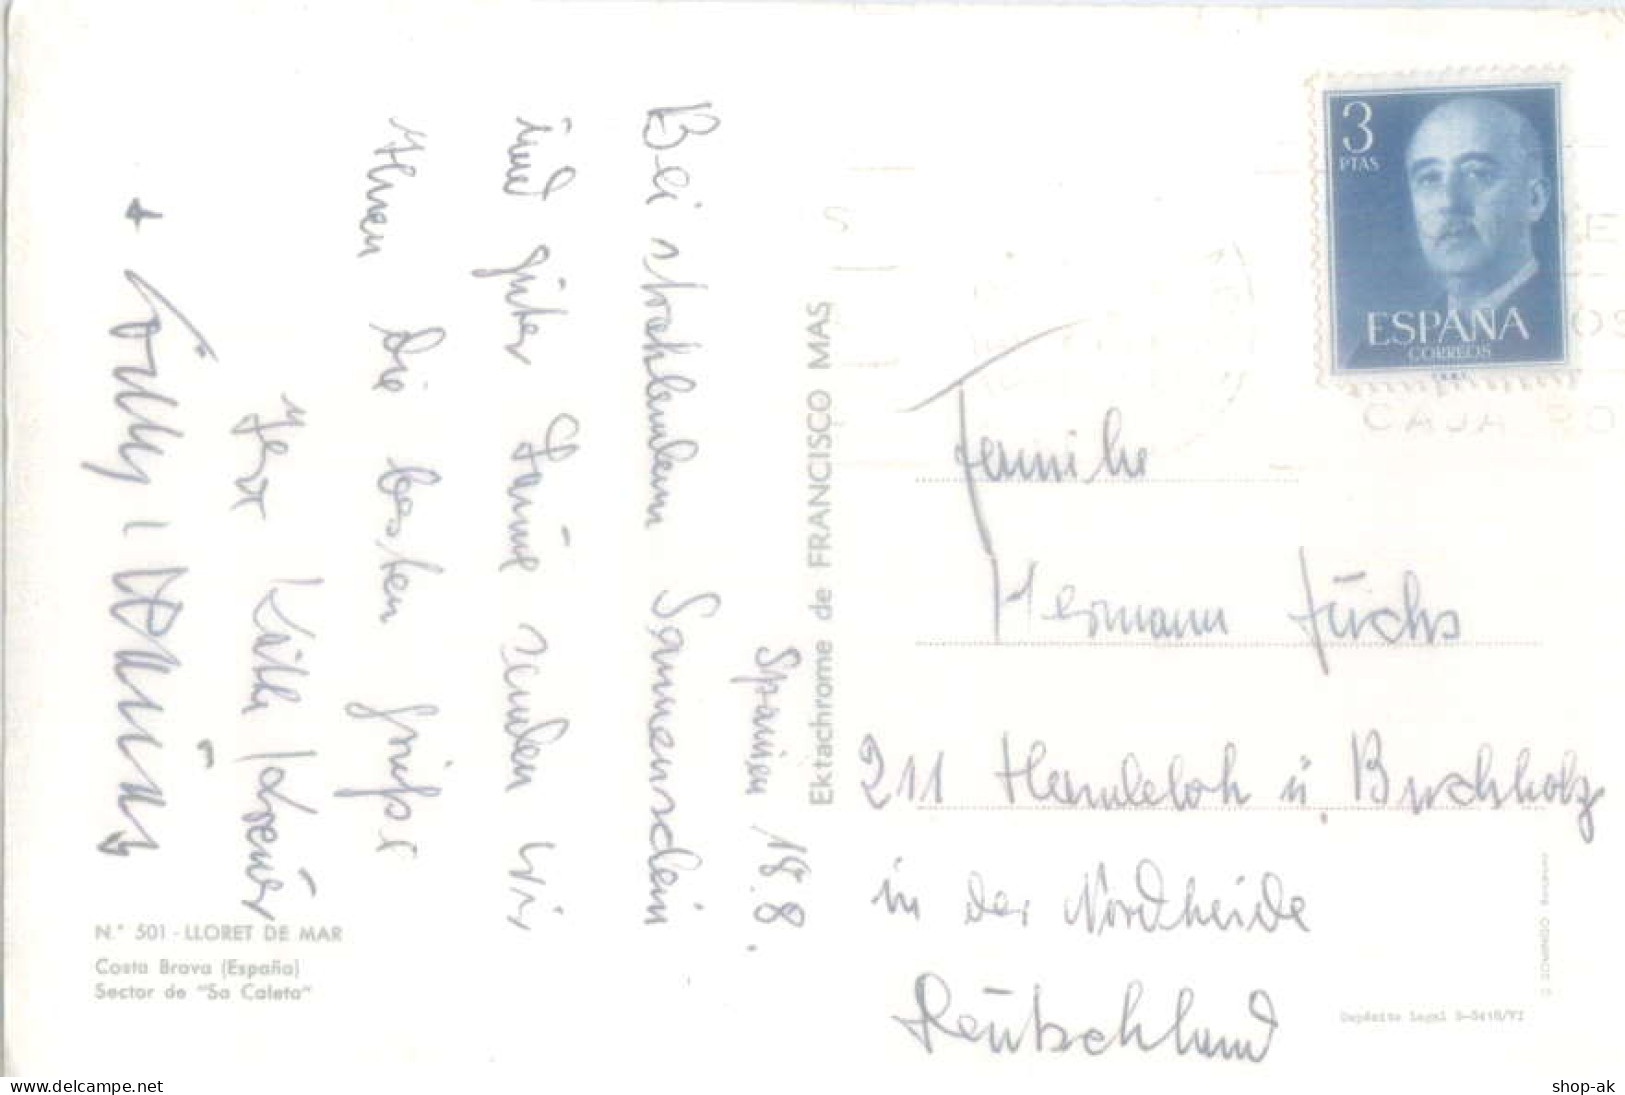 Spanien 18.8.
Bei strahlendem Sonnenschein
und guter Laune senden wir
Ihnen die besten Grüße
Ihre Käthe
+ Willy
N.° 501 - LLORET DE MAR
Costa Brava (España)
Sector de "Sa Caleta"
Ektachrome de FRANCISCO MAS
3
PTAS
ESPAÑA
CORREOS
CAJA PO
Familie
Hermann Fuchs
211 Handeloh ü. Buchholz
in der Nordheide
Deutschland
www.delcampe.net
shop-ak